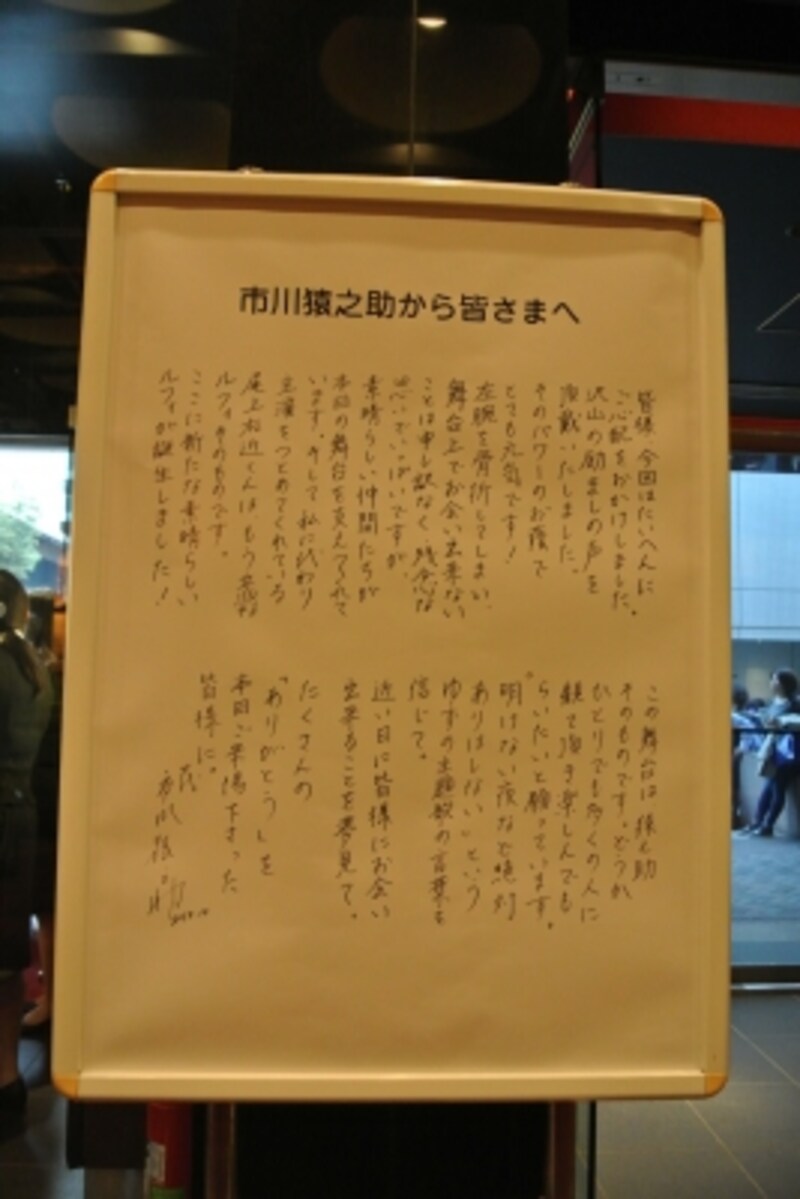 市川猿之助から皆さまへ
皆様、今回はたいへんに
ご心配をおかけしました。
沢山の励ましの声を
頂戴いたしました。
そのパワーのお蔭で
とても元気です!
左腕を骨折してしまい、
舞台上でお会い出来ない
ことは申し訳なく、残念な
思いでいっぱいですが、
素晴らしい仲間たちが
本日の舞台を支えてくれて
います。そして私に代わり
主演をつとめてくれている
尾上右近くんは、もう
ルフィそのものです。
ここに新たな素晴らしい
ルフィが誕生しました!
この舞台は猿之助
そのものです。どうか
ひとりでも多くの人に
観て頂き楽しんでも
らいたいと願っています。
“明けない夜など絶対
ありはしない”という
ゆずの主題歌の言葉を
信じて。
近い日に皆様にお会い
出来ることを夢見て。
たくさんの
「ありがとう」を
本日ご来場下さった
皆様に。
市川猿之助